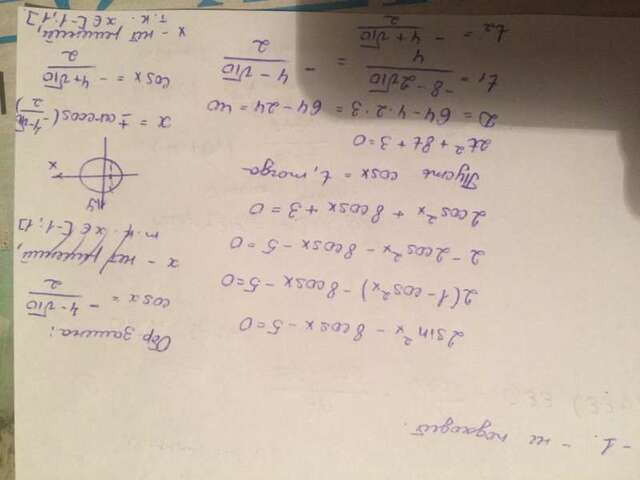 -1. - не подходит.
2sin²x - 8cosx - 5 = 0
2(1 - cos²x) - 8cosx - 5 = 0
2 - 2cos²x - 8cosx - 5 = 0
2cos²x + 8cosx + 3 = 0
Пусть cosx = t, тогда
2t² + 8t + 3 = 0
D = 64 - 4·2·3 = 64 - 24 = 40
t₁ = (-8 - 2√10)/4 = - (4 - √10)/2
t₂ = - (4 + √10)/2
Обр. замена:
cosx = - (4 - √10)/2
x - нет решений,
т.к. x ∈ [-1; 1]
y x
x = ± arccos(
cosx = - (4 + √10)/2
x - нет решений,
т.к. x ∈ [-1; 1].